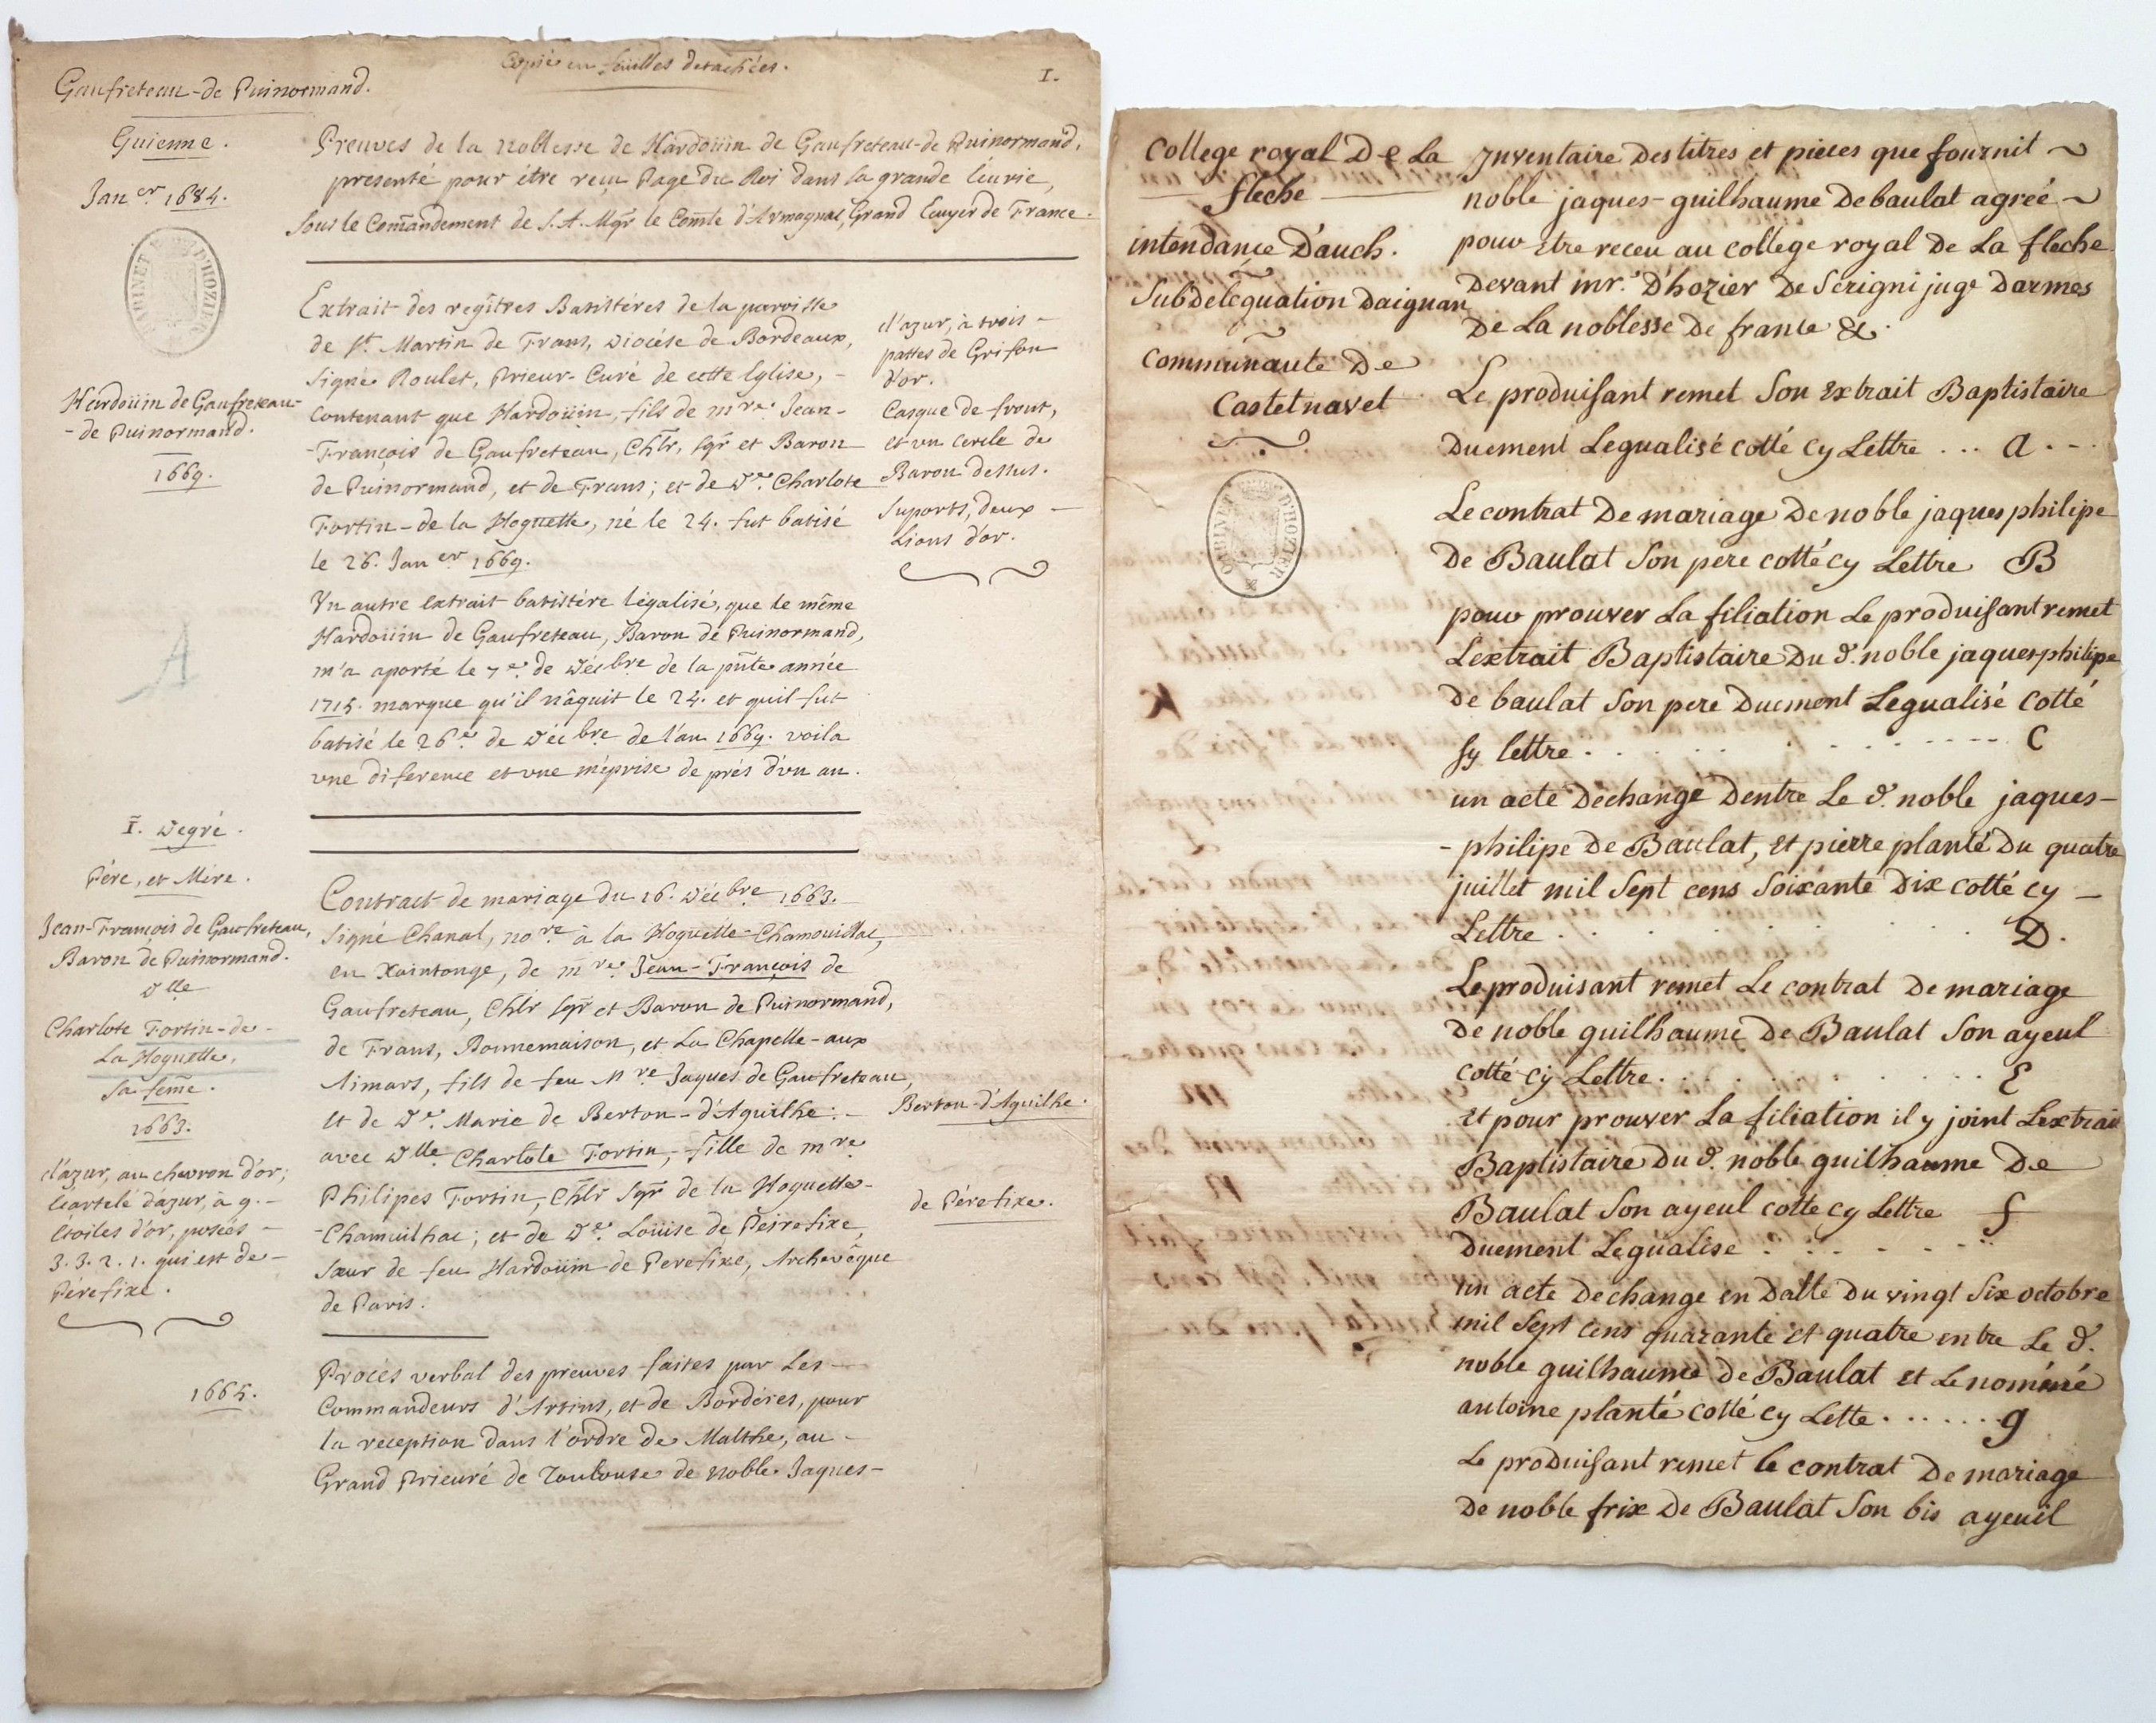 Copié en feüilles detachées.
1.
Gaufreteau-de Puinormand.
Guienne.
Jan.er 1684.
Preuves de la noblesse de Hardoüin de Gaufreteau-de Puinormand,
presenté pour être reçu Page du Roi dans la grande Ecurie,
sous le Commandement de S. A. Mgr le Comte d'Armagnac, Grand Ecuyer de France.
CABINET D'HOZIER
Hardoüin de Gaufreteau-
-de Puinormand.
1669.
Extrait des registres Batistéres de la paroisse
de St. Martin de Frans, Diocése de Bordeaux,
signé Roulet, Prieur-Curé de cette Eglise,
contenant que Hardoüin, fils de mre. Jean-
-François de Gaufreteau, Chlr, sgr et Baron
de Puinormand, et de Frans; et de De. Charlote
Fortin-de la Hoguette, né le 24. fut batisé
le 26. Jan.er 1669.
d'azur, à trois
pattes de Grifon
d'or.
Casque de front,
et un cercle de
Baron dessus.
Suports, deux
Lions d'or.
Vn autre extrait batistére légalisé, que le même
Hardoüin de Gaufreteau, Baron de Puinormand,
m'a aporté le 7e. de Décbre. de la pnte année
1715. marque qu'il nâquit le 24. et quil fut
batisé le 26e. de Décbre. de l'an 1669. voila
vne diference et vne méprise de prés d'vn an.
A
I. Degré.
Pére, et Mére.
Jean-François de Gaufreteau,
Baron de Puinormand.
Dlle
Charlote Fortin-de-
La Hoguette,
Sa feme.
1663.
d'azur, au chevron d'or;
écartelé d'azur, à 9.
Etoiles d'or, posées
3. 3. 2. 1. qui est de
Péréfixe.
Contract de mariage du 16. Décbre. 1663.
signé Chanal, nore. à la Hoguette-Chamouillac,
en Xaintonge, de mre. Jean-François de
Gaufreteau, Chlr sgr et Baron de Puinormand,
de Frans, Bonnemaison, et La Chapelle-aux
Aimars, fils de feu Mre Jaques de Gaufreteau,
Et de De. Marie de Berton-d'Aguilhe:
avec Dlle. Charlote Fortin, fille de mre.
Philipes Fortin, Chlr Sgr de la Hoguette-
-Chamuilhac; et de De. Loüise de Peirefixe,
Sœur de feu Hardoüin de Perefixe, Archevêque
de Paris.
Berton-d'Aguilhe.
de Pérefixe.
1665.
Procès verbal des preuves faites par Les
Commandeurs d'Arsins, et de Bordéres, pour
la reception dans l'ordre de Malthe, au
Grand Prieuré de Toulouse de noble Jaques-
College royal De La
fleche
intendance D'auch.
Subdeleguation Daignan
Communaute De
Castelnavet
CABINET D'HOZIER
Inventaire Des titres et pieces que fournit
noble jaques-guilhaume De baulat agréé
pour Etre receu au college royal De La fleche
Devant mr. D'hozier De Serigni juge Darmes
De La noblesse De france &.
Le produisant remet Son Extrait Baptistaire
Duement Legualisé cotté cy Lettre ... a .
Le contrat De mariage De noble jaques philipe
De Baulat Son pere cotté cy Lettre B
pour prouver La filiation Le produisant remet
Lextrait Baptistaire Du d. noble jaques philipe
De baulat Son pere Duement Legualisé Cotté
sy lettre . . . . . . C
un acte Dechange Dentre Le d. noble jaques-
-philipe De Baulat, et pierre planté Du quatre
juillet mil Sept cens Soixante Dix cotté cy
Lettre . . . . . . D.
Le produisant remet Le contrat De mariage
De noble guilhaume De Baulat Son ayeul
cotté cy Lettre . . . . . . E
Et pour prouver La filiation il y joint Lextrait
Baptistaire Du d. noble guilhaume De
Baulat Son ayeul cotte cy Lettre f
Duement Legualise . . . . . .
un acte Dechange en Datte Du vingt Six octobre
mil Sept cens quarante et quatre entre Le d.
noble guilhaume De Baulat et Le nommé
antoine planté cotté cy Lette . . . . . . g
Le produisant remet le contrat De mariage
De noble frix De Baulat Son bis ayeuil